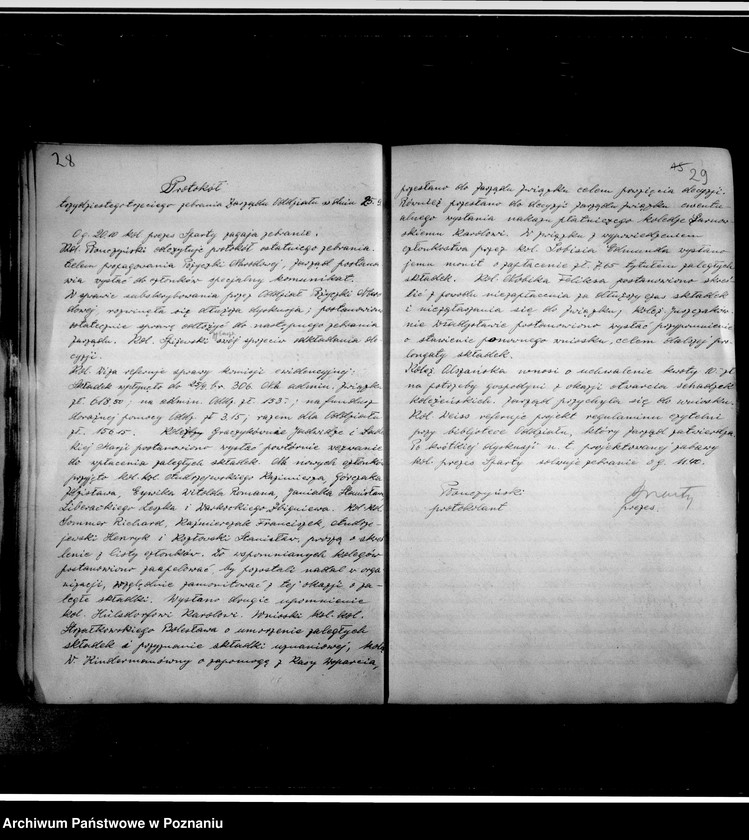 28
Protokół
trzydziestego trzeciego zebrania Zarządu Oddziału w dniu
O g. 20.10 kol. prezes Sparty zagaja zebranie.
Kol. Pończyński odczytuje protokół ostatniego zebrania.
Celem propagowania Pożyczki Narodowej, Zarząd postana-
wia wysłać do członków specjalny komunikat.
W sprawie subskrybowania przez Oddział Pożyczki Naro-
dowej rozwinęła się dłuższa dyskusja; postanowiono
ostatecznie sprawę odłożyć do następnego zebrania
Zarządu. Kol. zgłasza swój sprzeciw odkładania de-
cyzji.
Kol. Wiza referuje sprawy komisji ewidencyjnej:
Składek wpłynęło do 306. Dla admin. Związku
zł. 618.50; na admin. Oddz. zł. 193.; na fundusz
doraźnej pomocy Oddz. zł 3.15; razem dla Oddziału
zł. 156.15. Graczykównie Jadwidze i
Marji postanowiono wysłać powtórnie wezwanie
do wpłacenia zaległych składek. Na nowych członków
przyjęto kol. kol. Andrzejewskiego Kazimierza, Górczaka
Zdzisława, Witolda Romana, Janiaka Stanisława
Liberackiego Leszka i Zbigniewa. Kol. kol.
Sommer Richard, Kaźmierczak Franciszek, Andrze-
jewski Henryk i Kozłowski Stanisław, proszą o skre-
ślenie z listy członków. Do wspomnianych kolegów
postanowiono zaapelować, by pozostali nadal w orga-
nizacji, względnie zamonitować z tej okazji o za-
ległe składki. Wysłano drugie upomnienie
kol. Hülsdorfowi Karolowi. Wnioski kol. kol.
Strzałkowskiego Bolesława o umorzenie zaległych
składek i przyznanie składki uznaniowej,
W. Kindermanówny o zapomogę z Kasy Wsparcia,
45 29
przesłano do Zarządu Związku celem powzięcia decyzji.
Również przesłano do decyzji Zarządu Związku ewentu-
alnego wysłania nakazu płatniczego koledze Żarnow-
skiemu Karolowi. W związku z wypowiedzeniem
członkostwa przez kol. Łobisia Edmunda wysłano
jemu monit o zapłacenie zł. 7.65 tytułem zaległych
składek. Kol. Feliksa postanowiono skreś-
lić z powodu niezapłacenia za dłuższy czas składek
i niezgłaszania się do Związku,
nie Władysławie postanowiono wysłać przypomnienie
o stawienie ponownego wniosku, celem dalszej pro-
longaty składek.
Kol. Olszańska wnosi o uchwalenie kwoty 10.- zł.
na potrzeby gospodyni z okazji otwarcia schadzek
koleżeńskich. Zarząd przychyla się do wniosku.
Kol. Weiss referuje projekt regulaminu czytelni
przy bibliotece Oddziału, który Zarząd zatwierdza.
Po krótkiej dyskusji n. t. projektowanej zabawy
kol. prezes Sparty solwuje zebranie o g. 11.40.
Pończyński
protokolant
Sparty
prezes.
Archiwum Państwowe w Poznaniu